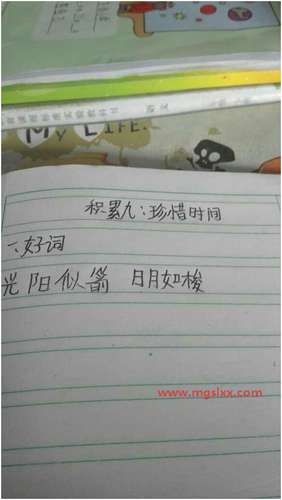 语文
MY LIFE.
积累九:珍惜时间
一、好词
光阳似箭 日月如梭
www.mgslxx.com